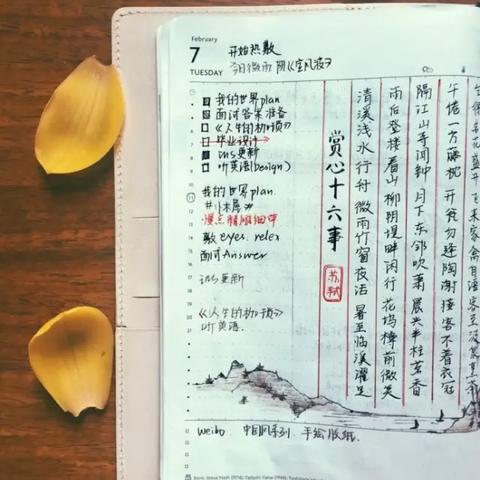 February
7
TUESDAY
开始热敷
今日微雨 阴《定风波》
我的世界plan
面试答案准备
《人生的枷锁》
毕业设计
ins更新
听英语(Design)
我的世界plan.
#小木屋#
慢点精雕细琢
敷eyes. relex
面试Answer
ins更新
《人生的枷锁》
听英语.
赏心十六事
苏轼
清溪浅水行舟 微雨竹窗夜话 暑至临溪濯足
雨后登楼看山 柳阴堤畔闲行 花坞樽前微笑
隔江山寺闻钟 月下东邻吹萧 晨兴半柱茗香
午倦一方藤枕 开瓮勿逢陶谢 接客不着衣冠
盛开 飞来家禽自语 客至汲泉烹茶
weibo. 中国风系列. 手绘版纸.